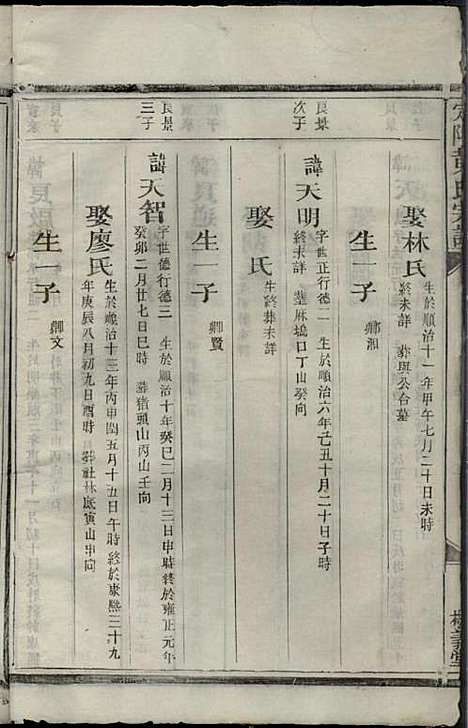 娶林氏
生於順治十一年甲午七月二十日未時
終未詳 葬與公合墓
生一子
良景
次子
諱天明
字世正行德二 生於順治六年己丑十月二十日子時
終未詳 葬麻塢口丁山癸向
娶 氏
生終葬未詳
生一子
卿賢
良景
三子
諱天智
字世德行德三 生於順治十年癸巳二月十三日申時終於雍正元年
癸卯二月廿七日巳時 葬猪頭山丙山壬向
娶廖氏
生於順治十三年丙申閏五月十五日午時終於康熙三十九
年庚辰八月初九日酉時 葬社林底寅山申向
生一子
卿文